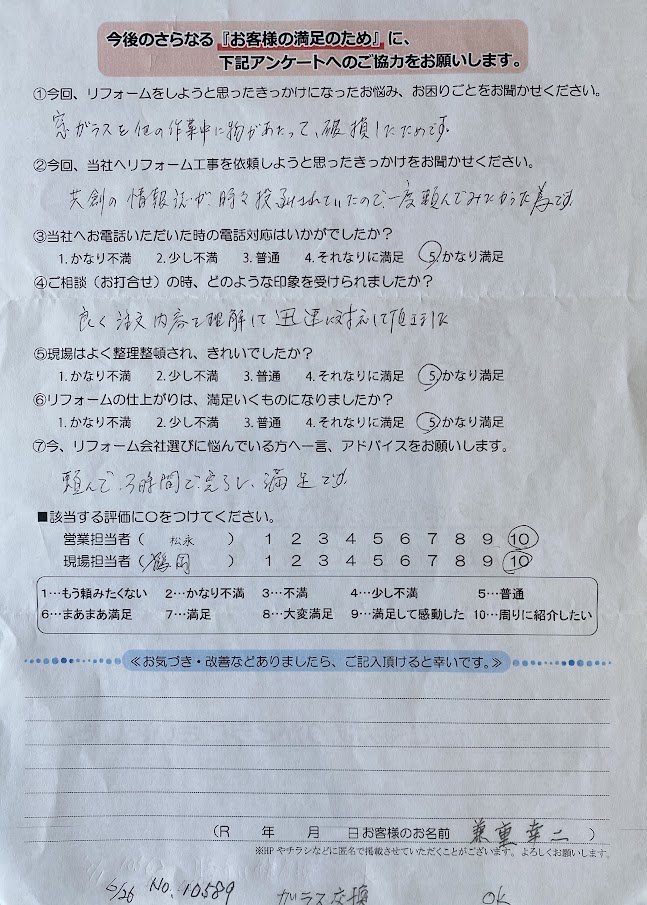 今後のさらなる『お客様の満足のため』に、
下記アンケートへのご協力をお願いします。
①今回、リフォームをしようと思ったきっかけになったお悩み、お困りごとをお聞かせください。
窓ガラスを他の作業中に物があたって、破損したためです。
②今回、当社へリフォーム工事を依頼しようと思ったきっかけをお聞かせください。
共創の情報誌が、時々投函されていたので、一度頼んでみたかった為です
③当社へお電話いただいた時の電話対応はいかがでしたか？
1.かなり不満 2.少し不満 3.普通 4.それなりに満足 5.かなり満足
④ご相談（お打合せ）の時、どのような印象を受けられましたか？
良く注文内容を理解して迅速に対応して頂きました
⑤現場はよく整理整頓され、きれいでしたか？
1.かなり不満 2.少し不満 3.普通 4.それなりに満足 5.かなり満足
⑥リフォームの仕上がりは、満足いくものになりましたか？
1.かなり不満 2.少し不満 3.普通 4.それなりに満足 5.かなり満足
⑦今、リフォーム会社選びに悩んでいる方へ一言、アドバイスをお願いします。
頼んで、3時間で完了し、満足です
■該当する評価に〇をつけてください。
営業担当者（ 松永 ） 1 2 3 4 5 6 7 8 9 10
現場担当者（ 鶴岡 ） 1 2 3 4 5 6 7 8 9 10
1…もう頼みたくない 2…かなり不満 3…不満 4…少し不満 5…普通
6…まあまあ満足 7…満足 8…大変満足 9…満足して感動した 10…周りに紹介したい
≪お気づき・改善などありましたら、ご記入頂けると幸いです。≫
（R 年 月 日 お客様のお名前 兼重幸二 ）
※HPやチラシなどに匿名で掲載させていただくことがございます。よろしくお願いします。
6/26 No.10589 ガラス交換 OK